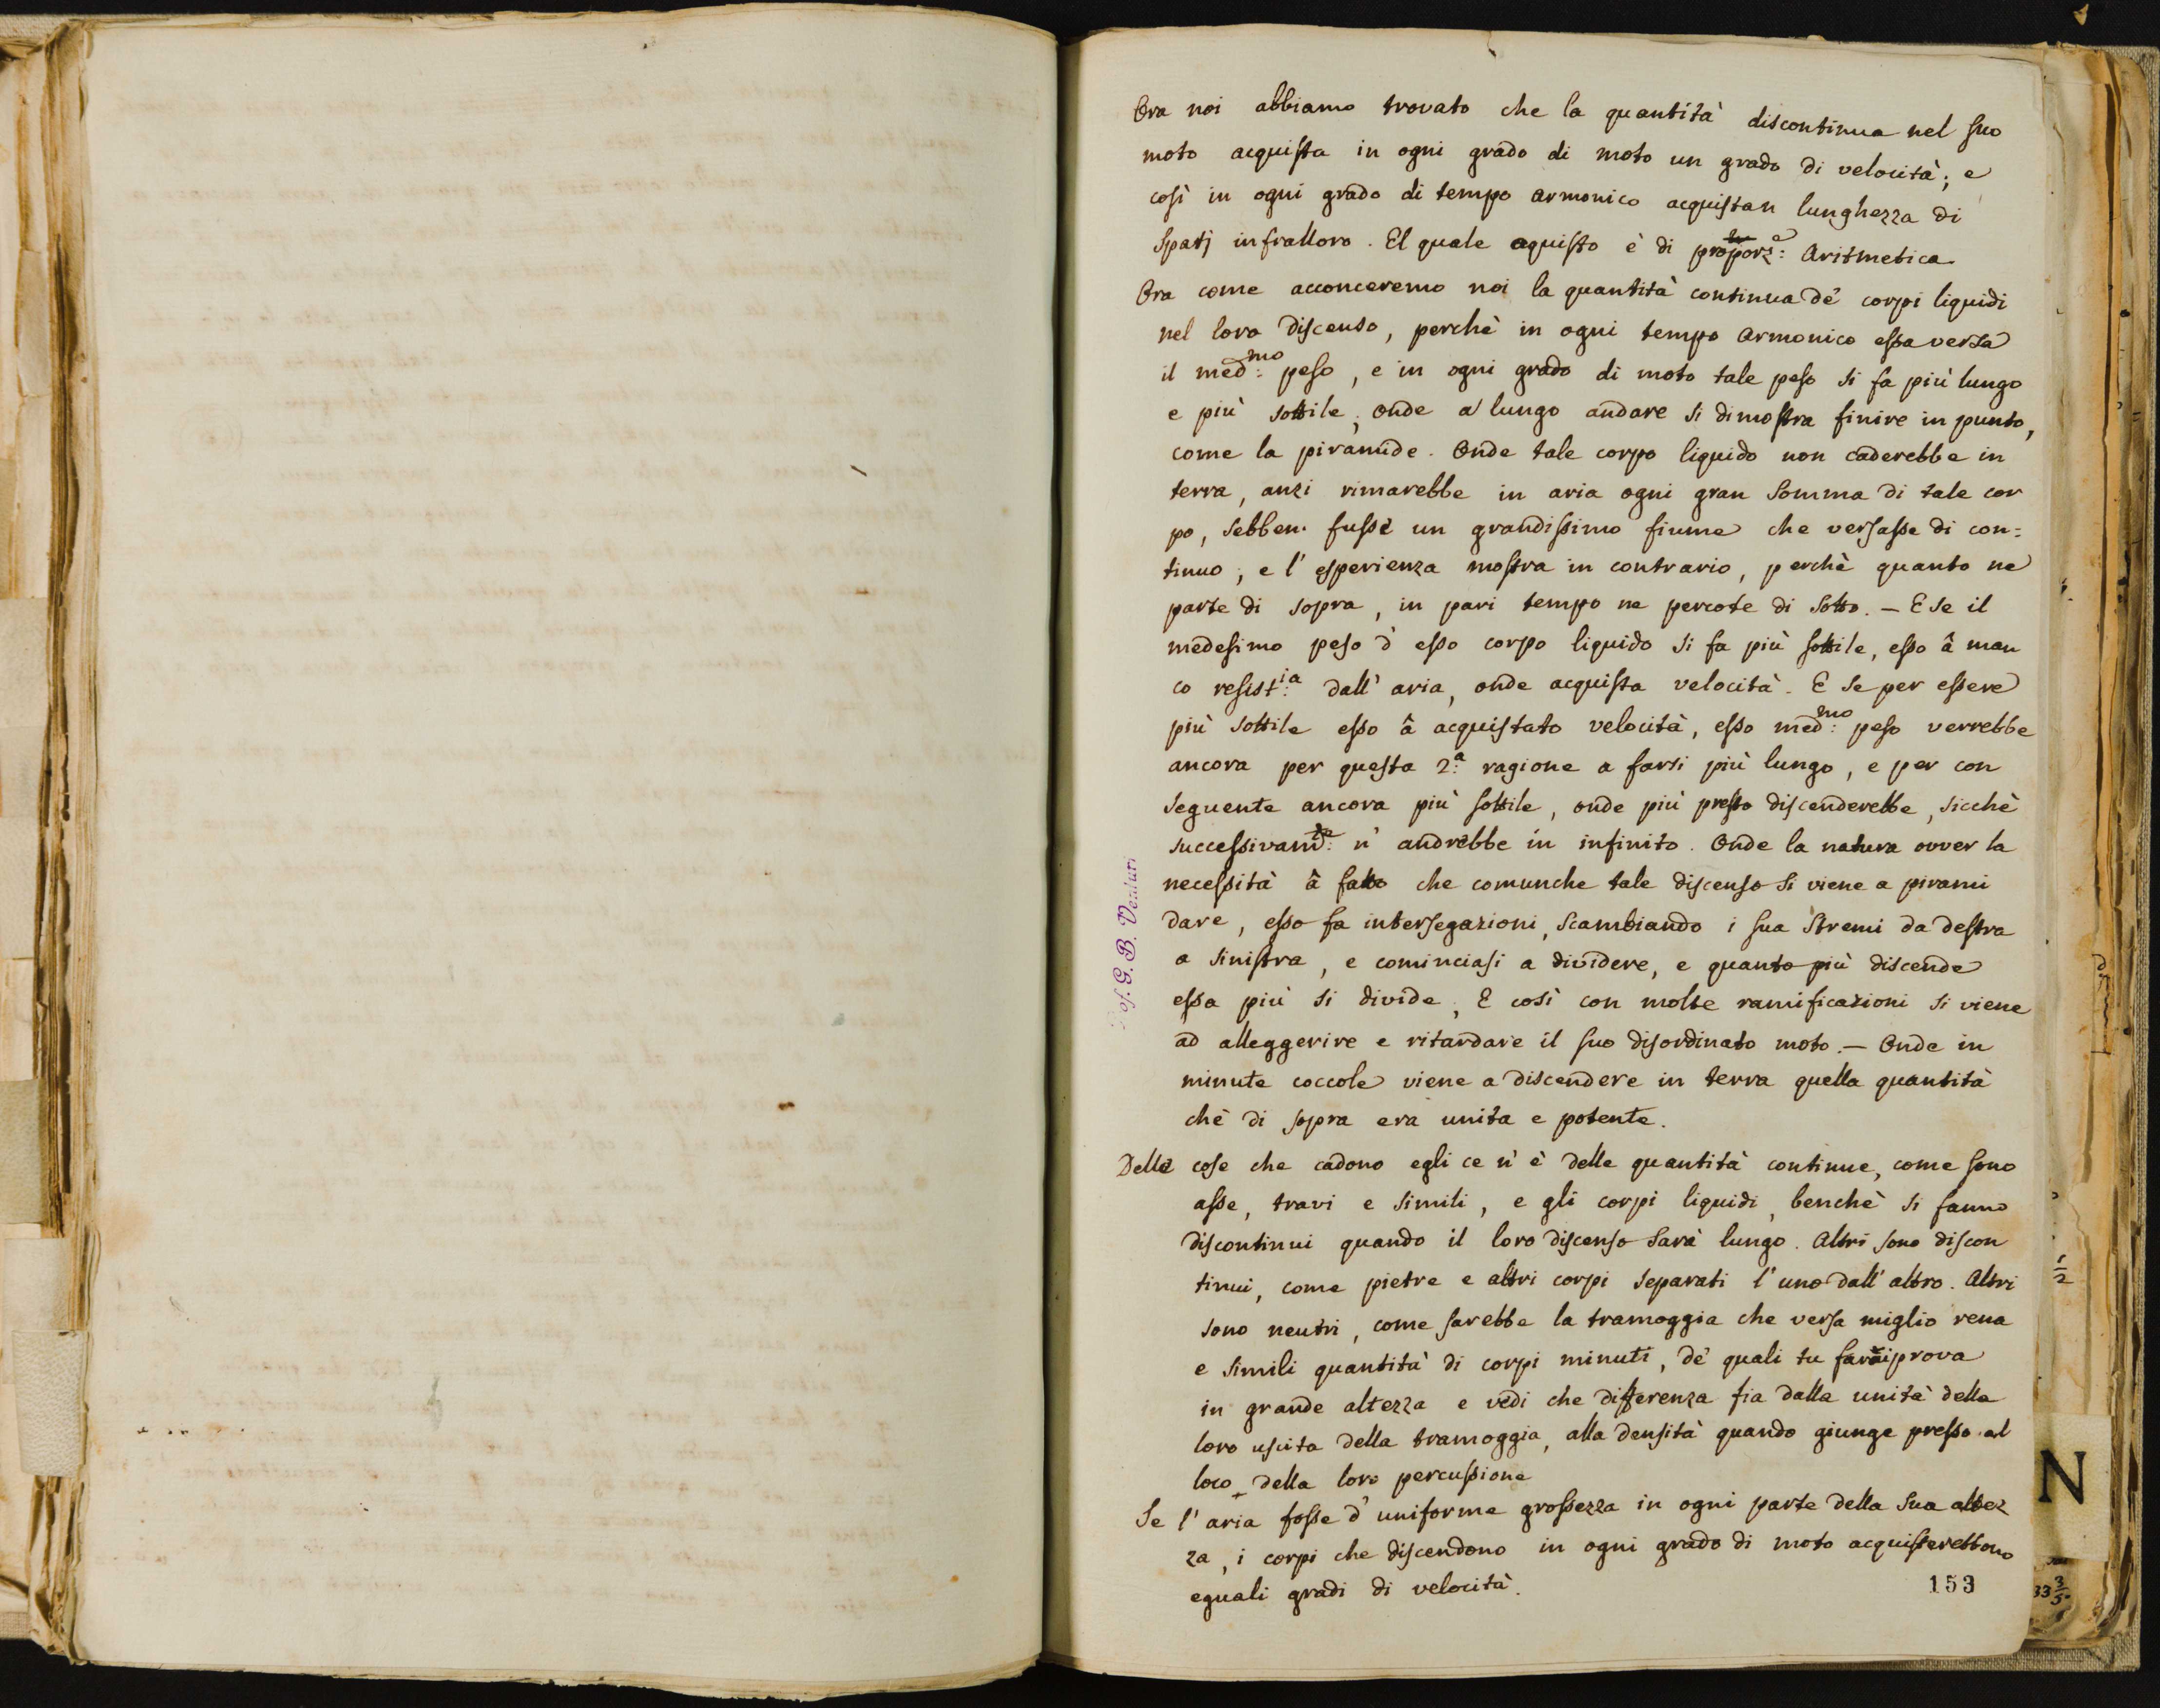 Ora noi abbiamo trovato che la quantità discontinua nel suo
moto acquista in ogni grado di moto un grado di velocità; e
così in ogni grado di tempo armonico acquistan lunghezza di
spatj infralloro. El quale aquisto è di proporz:ᵉ Aritmetica
Ora come acconceremo noi la quantità continua de' corpi liquidi
nel loro discenso, perchè in ogni tempo armonico essa versa
il med:ᵐᵒ peso, e in ogni grado di moto tale peso si fa più lungo
e più sottile; onde a lungo andare si dimostra finire in punto,
come la piramide. Onde tale corpo liquido non caderebbe in
terra, anzi rimarebbe in aria ogni gran somma di tale cor
po, sebben fusse un grandissimo fiume che versasse di con=
tinuo; e l'esperienza mostra in contrario, perchè quanto ne
parte di sopra, in pari tempo ne percote di sotto. — E se il
medesimo peso d'esso corpo liquido si fa più sottile, esso â man
co resist:ⁱᵃ dall'aria, onde acquista velocità. E se per essere
più sottile esso â acquistato velocità, esso med:ᵐᵒ peso verrebbe
ancora per questa 2:ᵃ ragione a farsi più lungo, e per con
seguente ancora più sottile, onde più presto discenderebbe, sicchè
successivam:ᵗᵉ n'andrebbe in infinito. Onde la natura ovver la
necessità â fatto che comunche tale discenso si viene a pirami
dare, esso fa intersegazioni, scambiando i sua stremi da destra
a sinistra, e cominciasi a dividere, e quanto più discende
essa più si divide; E così con molte ramificazioni si viene
ad alleggerire e ritardare il suo disordinato moto. — Onde in
minute coccole viene a discendere in terra quella quantità
chè di sopra era unita e potente.
Delle cose che cadono egli ce n'è delle quantità continue, come sono
asse, travi e simili, e gli corpi liquidi, benchè si fanno
discontinui quando il loro discenso sarà lungo. Altri sono discon
tinui, come pietre e altri corpi separati l'uno dall'altro. Altri
sono neutri, come sarebbe la tramoggia che versa miglio rena
e simili quantità di corpi minuti, de' quali tu farai prova
in grande altezza e vedi che differenza fia dalla unità della
loro uscita della tramoggia, alla densità quando giunge presso al
loco della loro percussione
Se l'aria fosse d'uniforme grossezza in ogni parte della sua altez
za, i corpi che discendono in ogni grado di moto acquisterebbono
eguali gradi di velocità.
153
of. G. B. Venturi
1/2
N
33 3/5